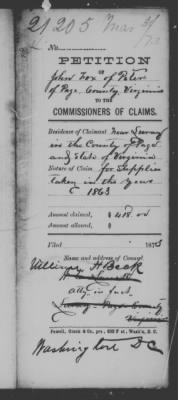 21205 Mar 31/73
No.
PETITION
OF
John Fox of Peter
of Page County, Virginia
TO THE
COMMISSIONERS OF CLAIMS.
Residence of Claimant Near Luray
in the County of Page
and State of Virginia
Nature of Claim for Supplies
taken in the year
1863
Amount claimed, $ 418.00
Amount allowed, $
Filed 1873
Name and address of Counsel
William H. Beck
atty in fact
Luray Page County
Virginia
Powell, Ginck & Co., prs., 632 F st., Wash'n, D. C.
Washington DC